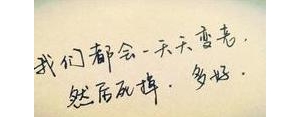 我们都会一天天变老.
然后死掉. 多好.